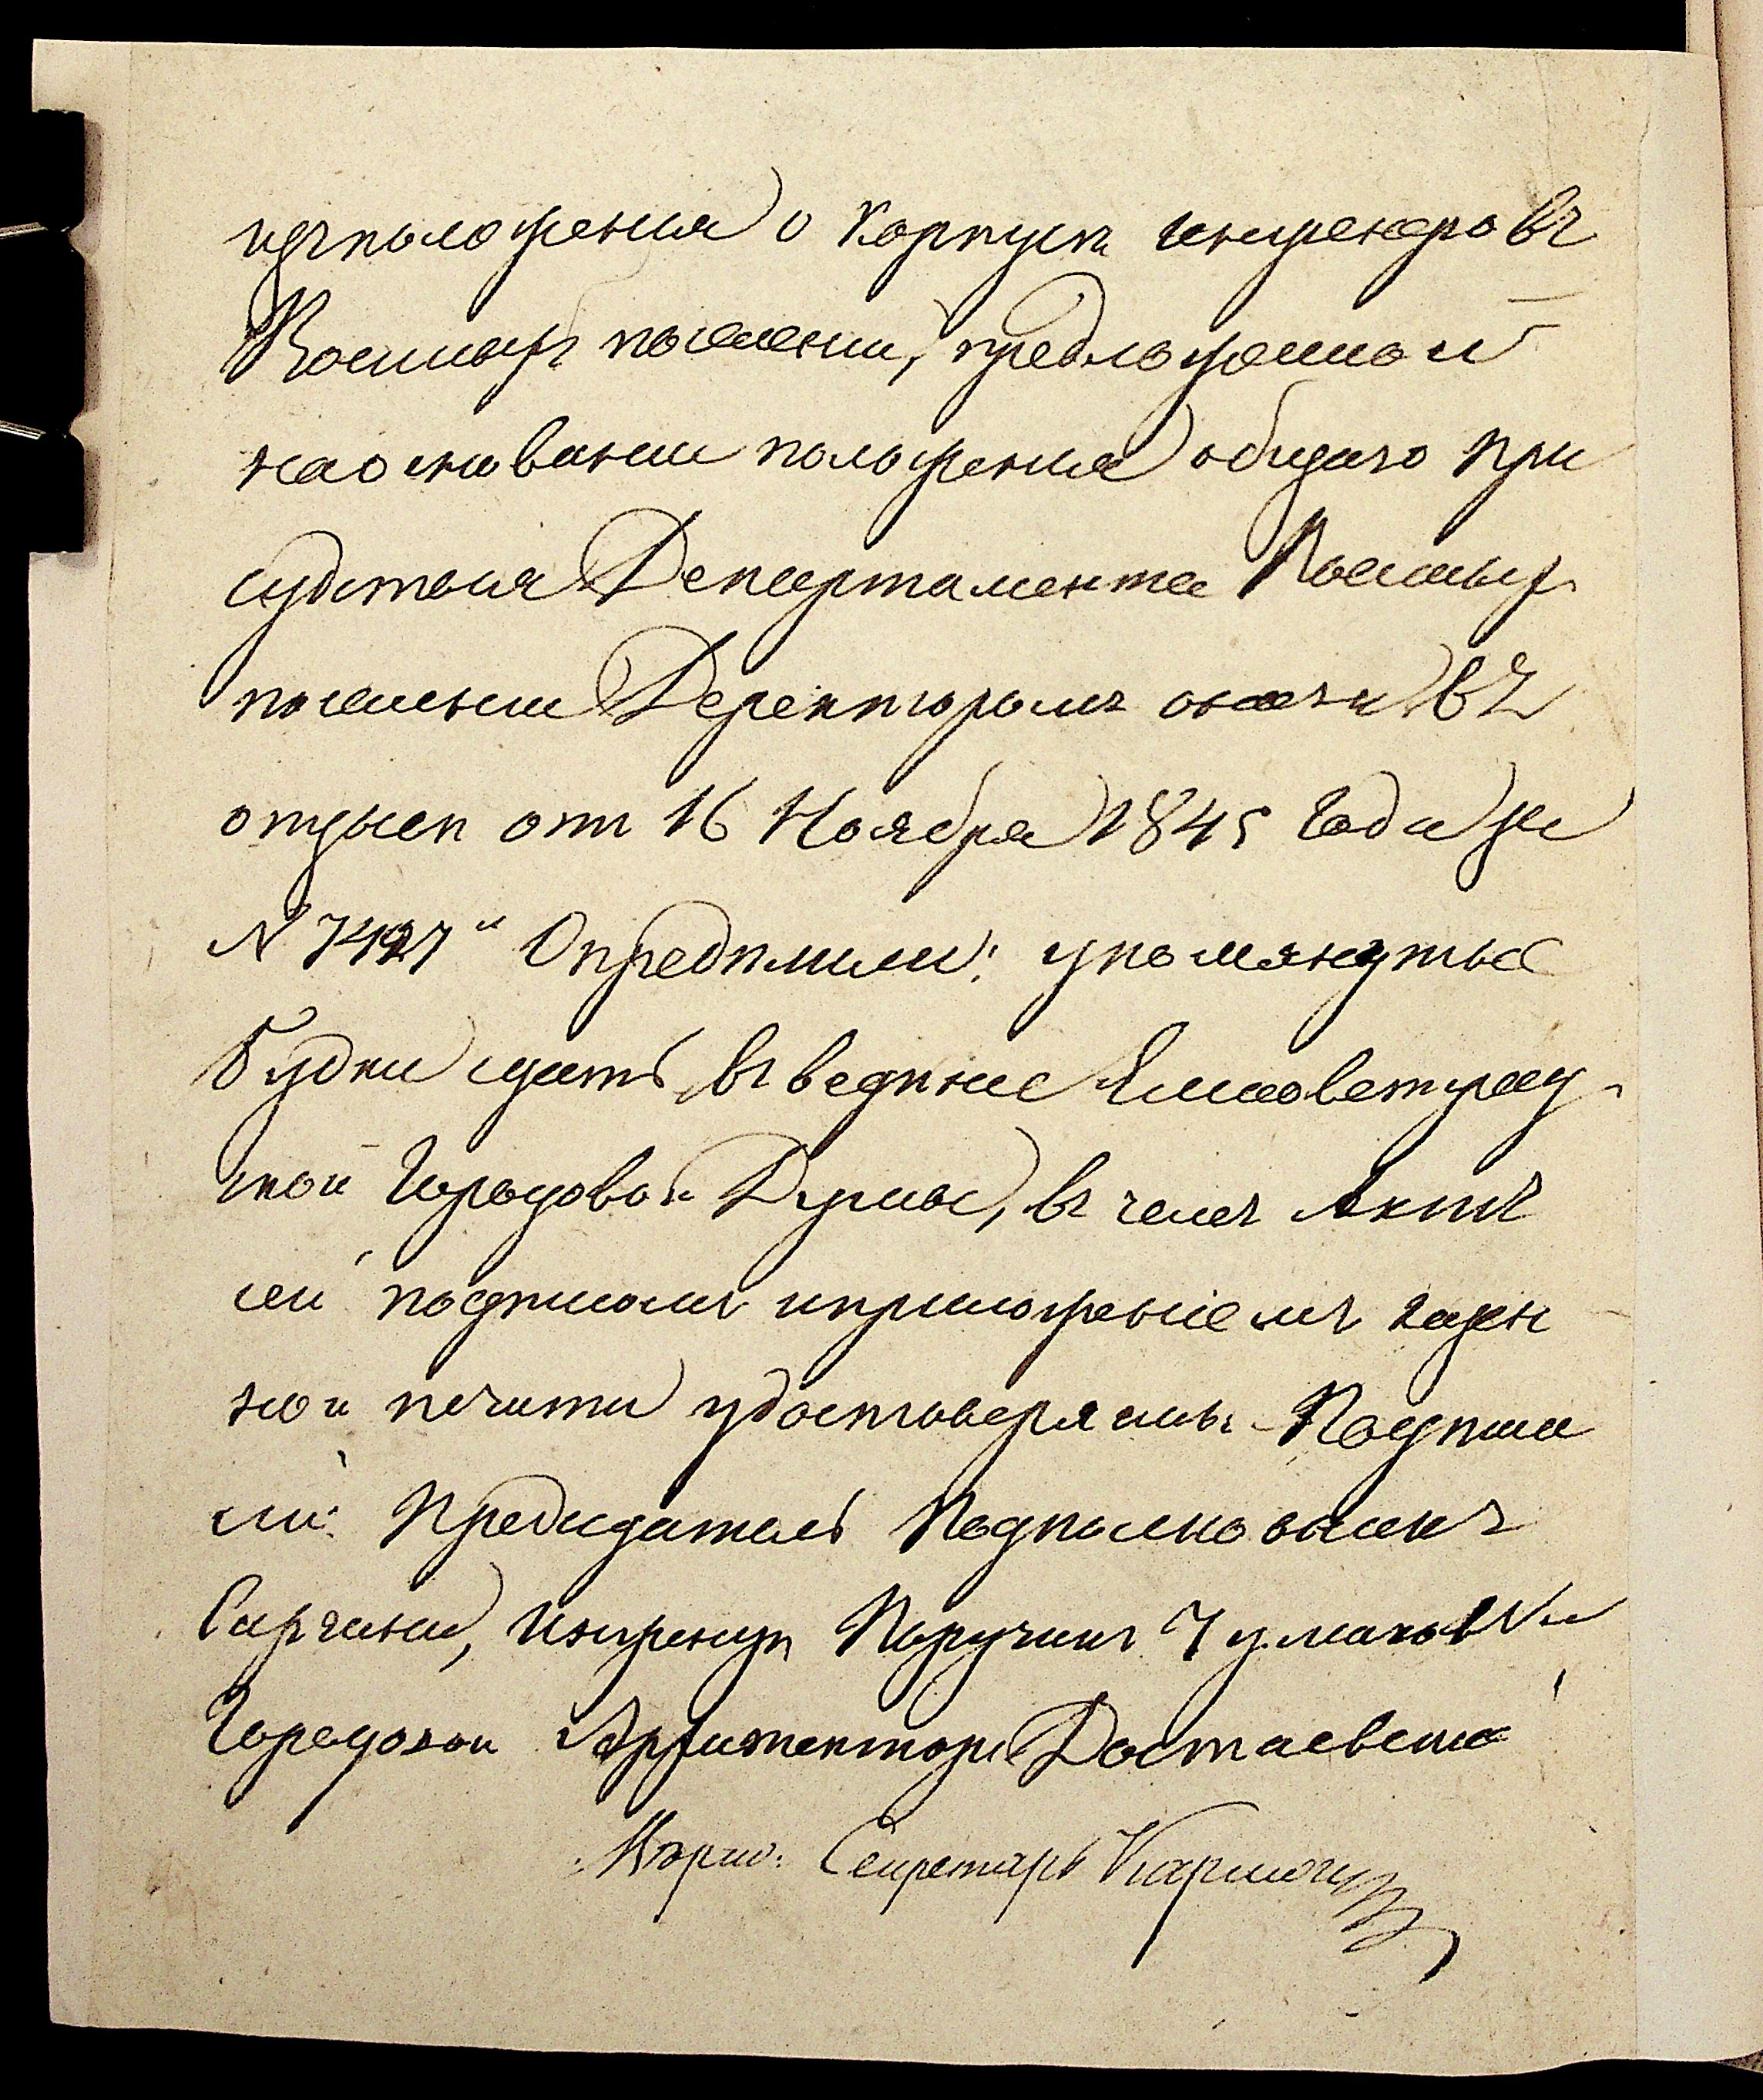 изъ положения о Корпусѣ Инженеровъ
Военныхъ поселении, предложенной
на основании положения общаго при
судствия Департамента Военныхъ
поселении Деректоромъ онаго въ
отзывѣ отъ 16 Ноября 1845 года за
N 7427" Опредѣлили: упомянутые
Будки сдать, въ ведѣние Елисаветград-
ской Городовой Думы, въ чемъ Актъ
сей подписомъ и приложениемъ казен
ной печати удостоверяемъ. Подписа
ли: Председатель Подполковникъ
Сарчини, Инженеръ Поручикъ Чумаковъ и
Городовой Архитекторъ Достаевский
Вѣрно: Секретарь